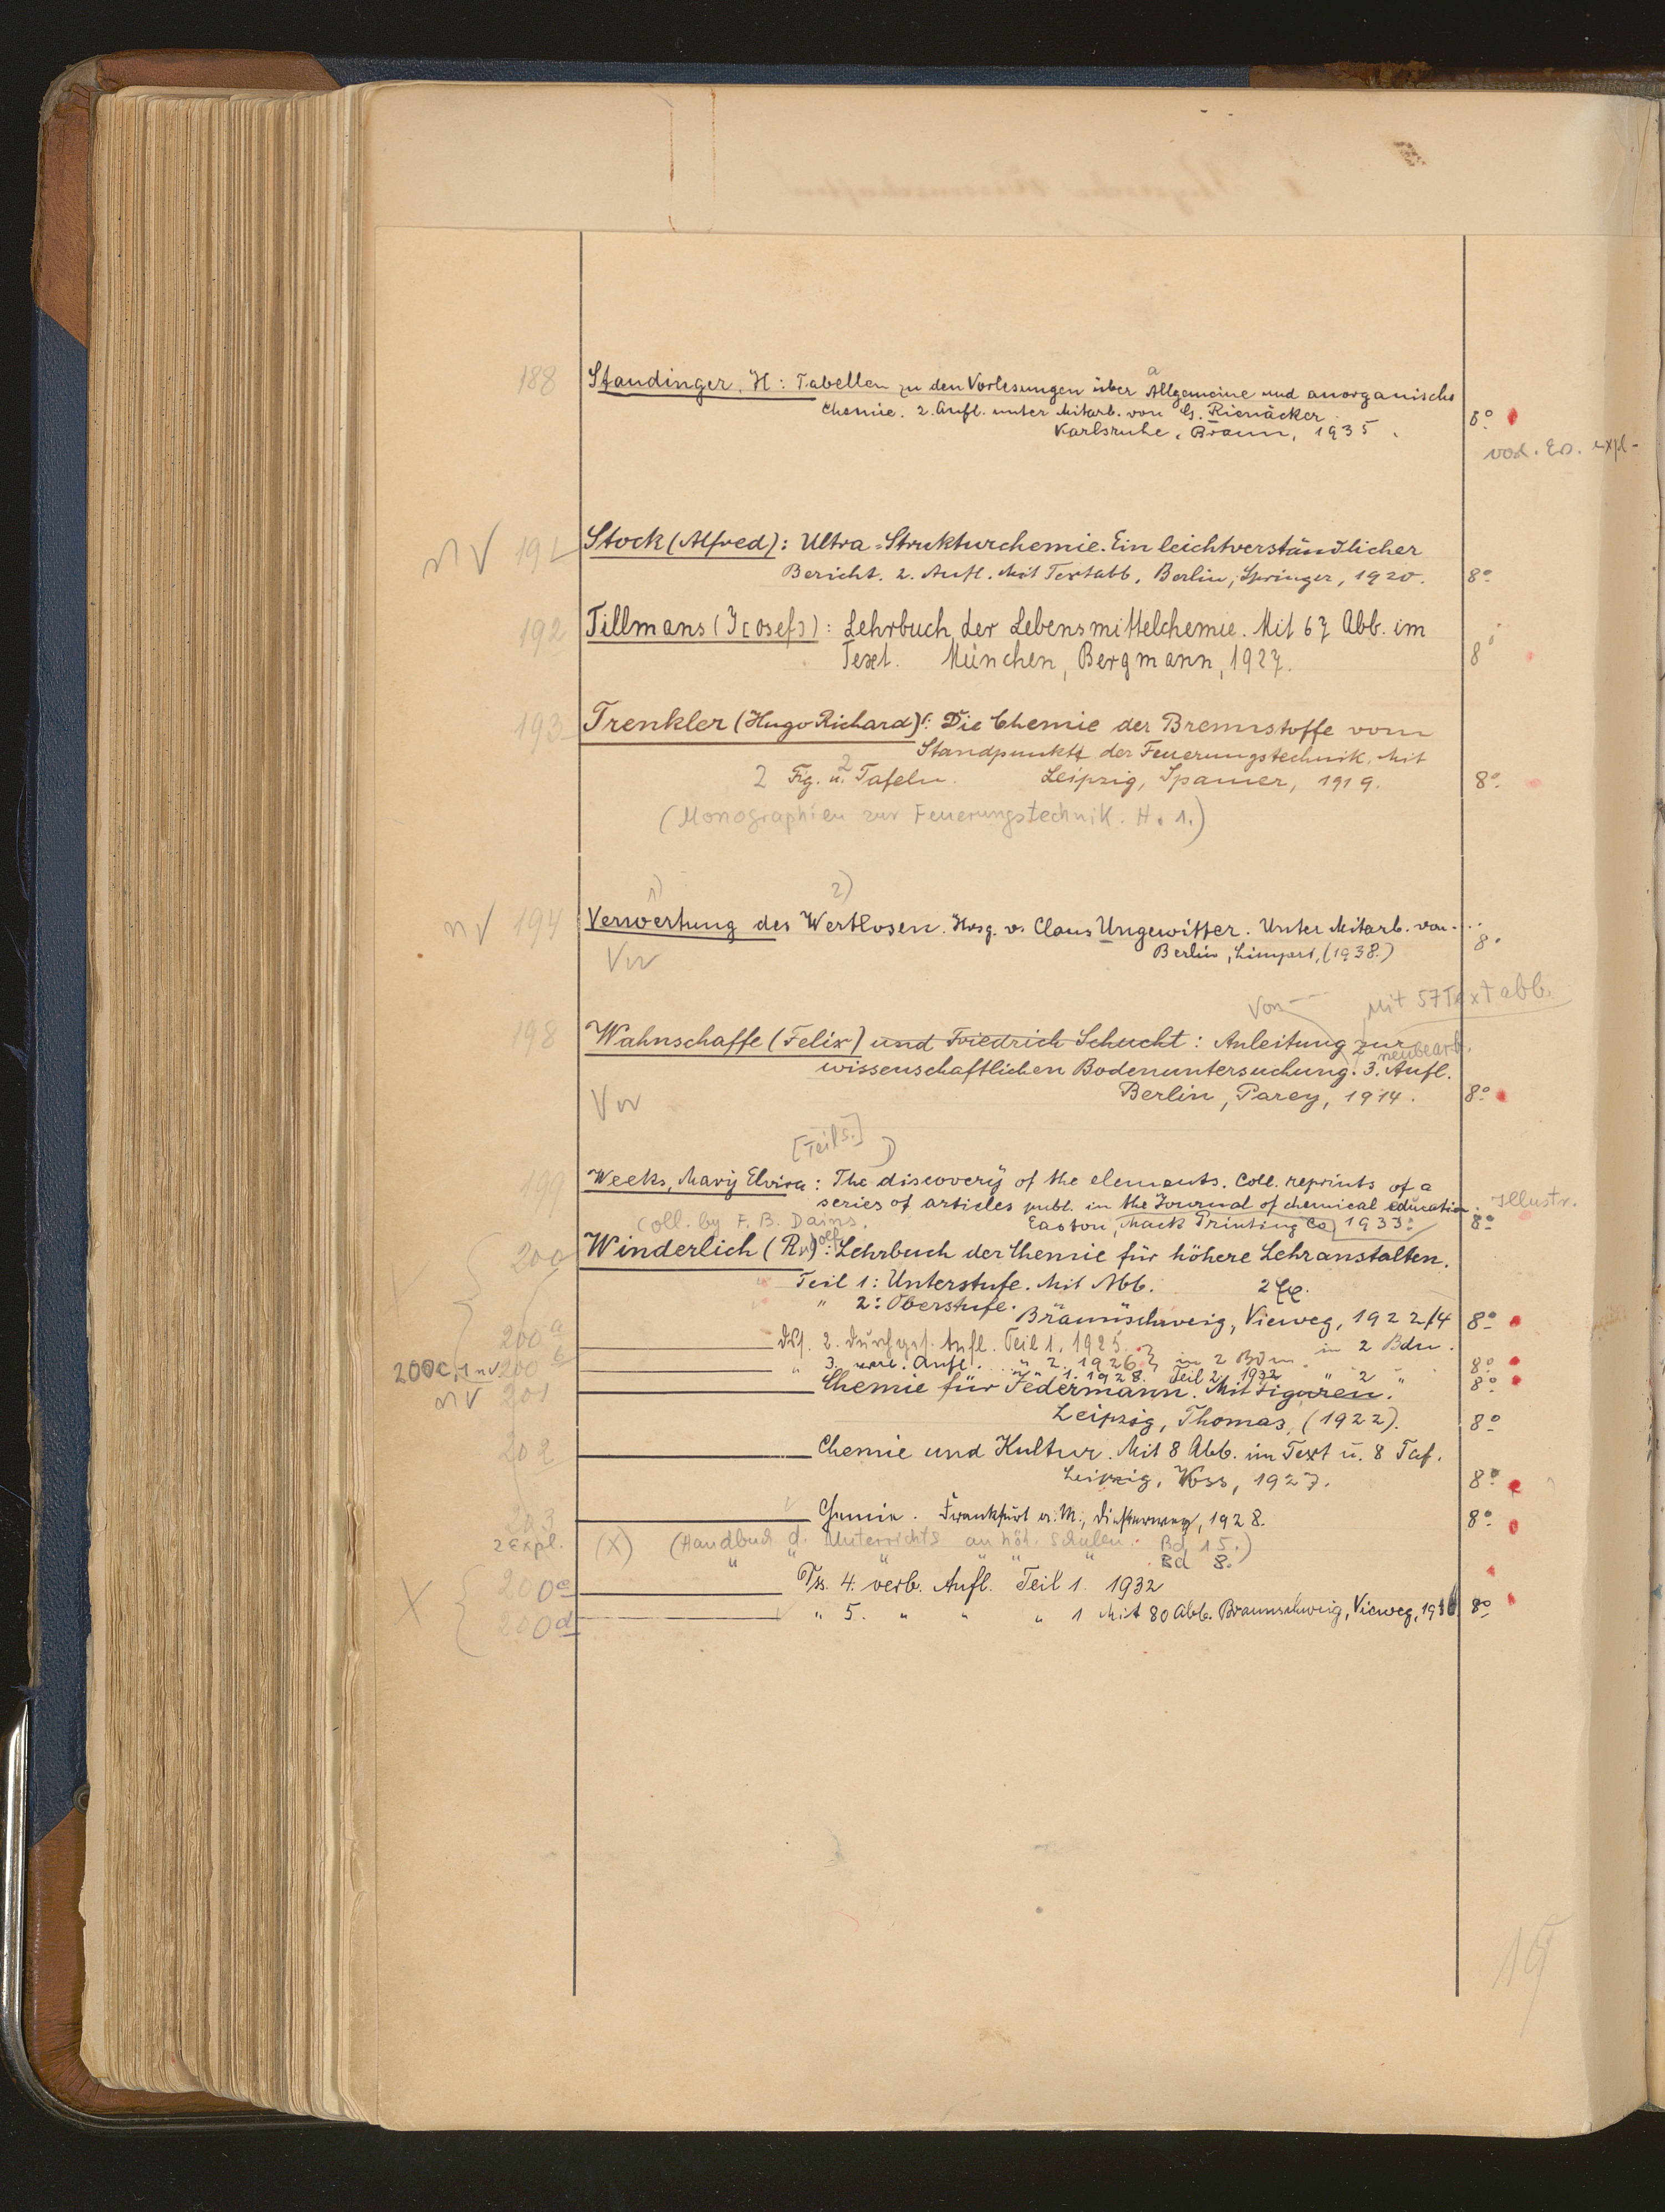 188 Staudinger, H: Tabellen zu den Vorlesungen über Allgemeine und anorganische
a
Chemie. 2. Aufl. unter Mitarb. von G. Rienäcker.
Karlsruhe, Braun, 1935. 8°
vod. Ex.
nV 191 Stock (Alfred): Ultra-Strukturchemie. Ein leichtverständlicher
Bericht. 2. Aufl. Mit Textabb. Berlin, Springer, 1920. 8°
192 Tillmans (J[osef]): Lehrbuch der Lebensmittelchemie. Mit 67 Abb. im
Text. München, Bergmann, 1927. 8°
193 Trenkler (Hugo Richard): Die Chemie der Brennstoffe vom
Standpunkte der Feuerungstechnik. Mit
2 Fig. u. 2 Tafeln. Leipzig, Spamer, 1919. 8°
(Monographien zur Feuerungstechnik. H. 1.)
1) 2)
nV 194 Verwertung des Wertlosen. Hrsg. v. Claus Ungewitter. Unter Mitarb. von...
Vw Berlin, Limpert, (1938.) 8°
Von — Mit 57 Textabb.
198 Wahnschaffe (Felix) und Friedrich Schucht: Anleitung zur
neubearb.
wissenschaftlichen Bodenuntersuchung. 3. Aufl.
Vw Berlin, Parey, 1914. 8°
[Teils.] 1)
199 Weeks, Mary Elvira: The discovery of the elements. Coll. reprints of a
series of articles publ. in the Journal of chemical education. Illustr.
Coll. by F. B. Dains. Easton, Mack Printing Co, 1933. 8°
200 Winderlich (Rudolf): Lehrbuch der Chemie für höhere Lehranstalten.
Teil 1: Unterstufe. Mit Abb.
" 2: Oberstufe. Braunschweig, Vieweg, 1922/4 8°
200a Dss. 2. durchges. Aufl. Teil 1. 1925. in 2 Bdn.
" 2. 1926 in 2 Bdn. 8°
200c, 1 nV 200b " 3. verb. Aufl. " 1. 1928. Teil 2. 1932 " 2 " 8°
nV 201 Chemie für Jedermann. Mit Figuren.
Leipzig, Thomas, (1922). 8°
202 Chemie und Kultur. Mit 8 Abb. im Text u. 8 Taf.
Leipzig, Voss, 1927. 8°
203 Chemie. Frankfurt a. M., Diesterweg, 1928. 8°
2 Expl. (X) (Handbuch d. Unterrichts an höh. Schulen. Bd 15.)
" " " " " " Bd 8.
X 200c Dss. 4. verb. Aufl. Teil 1. 1932
200d " 5. " " " 1 Mit 80 Abb. Braunschweig, Vieweg, 8°